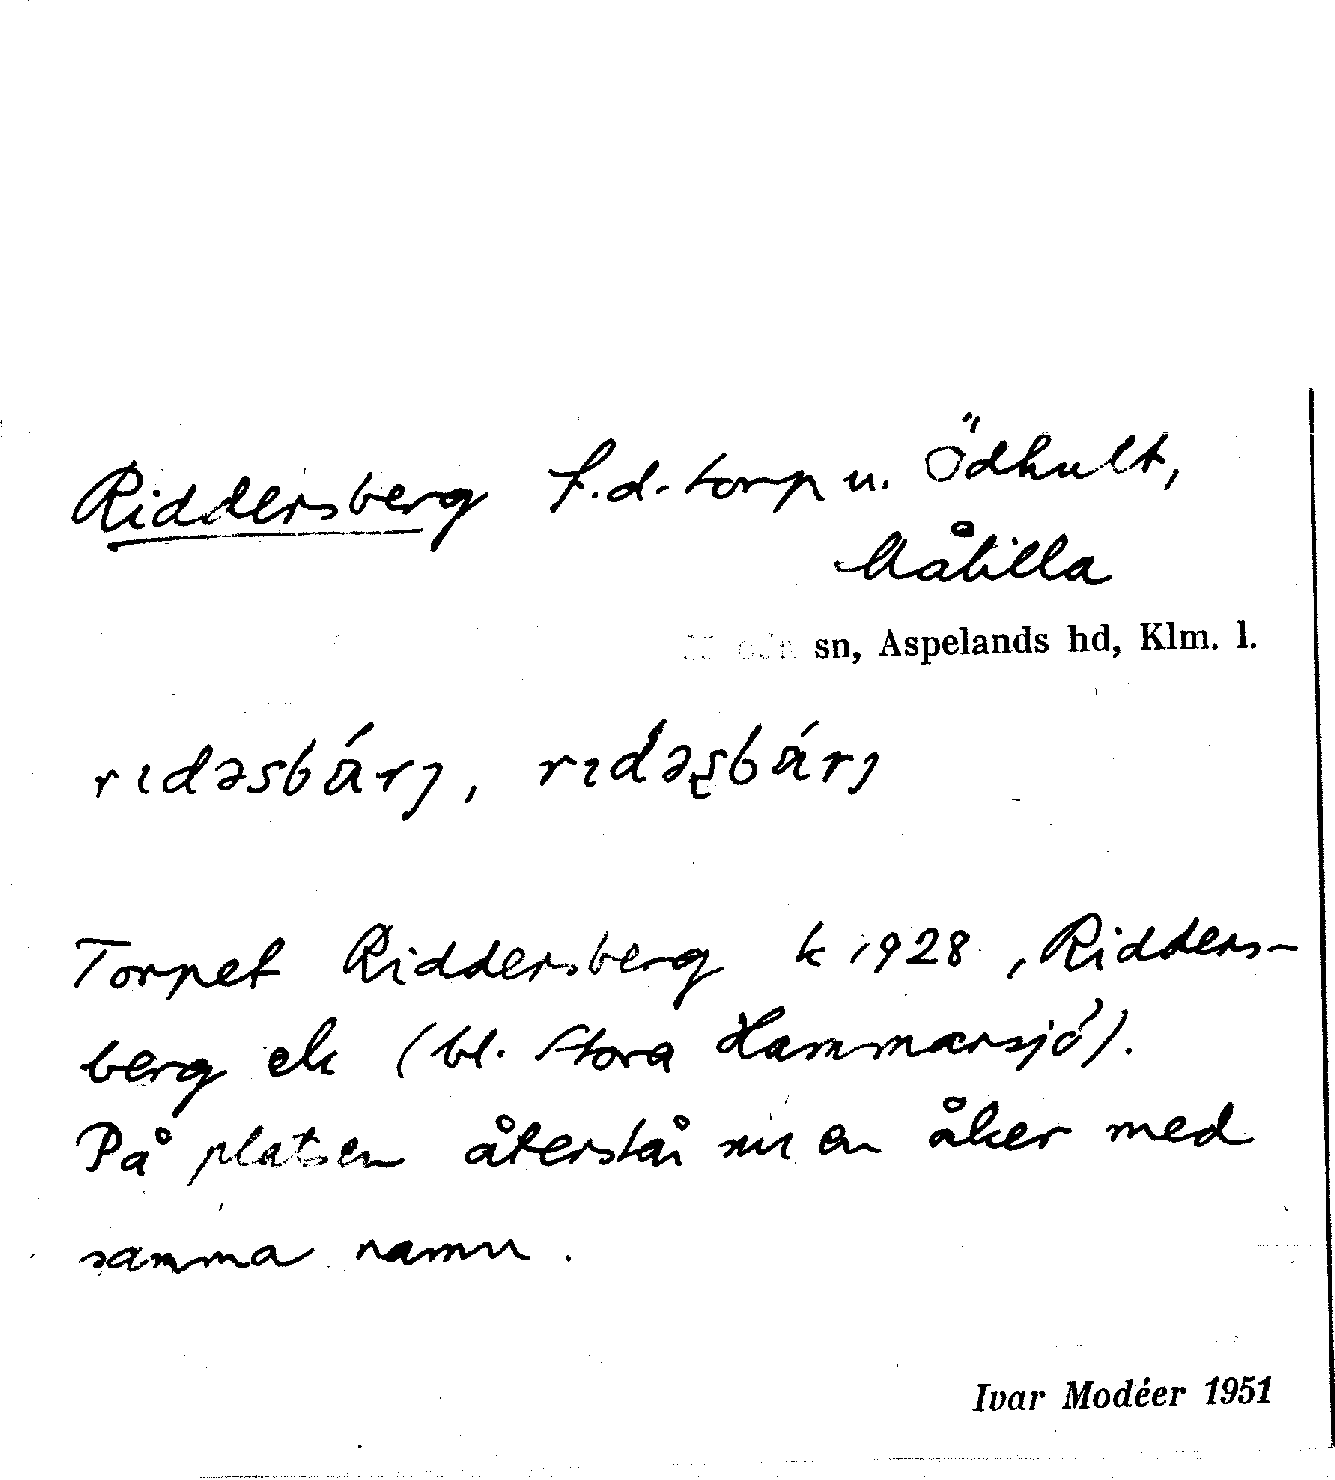 Riddersberg f.d. torp u. Ödhult,
Målilla
sn, Aspelands hd, Klm. l.
rıdəsbárj, rıdəʂbárj
Torpet Riddersberg k 1928, Ridders-
berg ek (bl. Stora Hammarsjö).
På platsen återstår nu en åker med
samma namn.
Ivar Modéer 1951